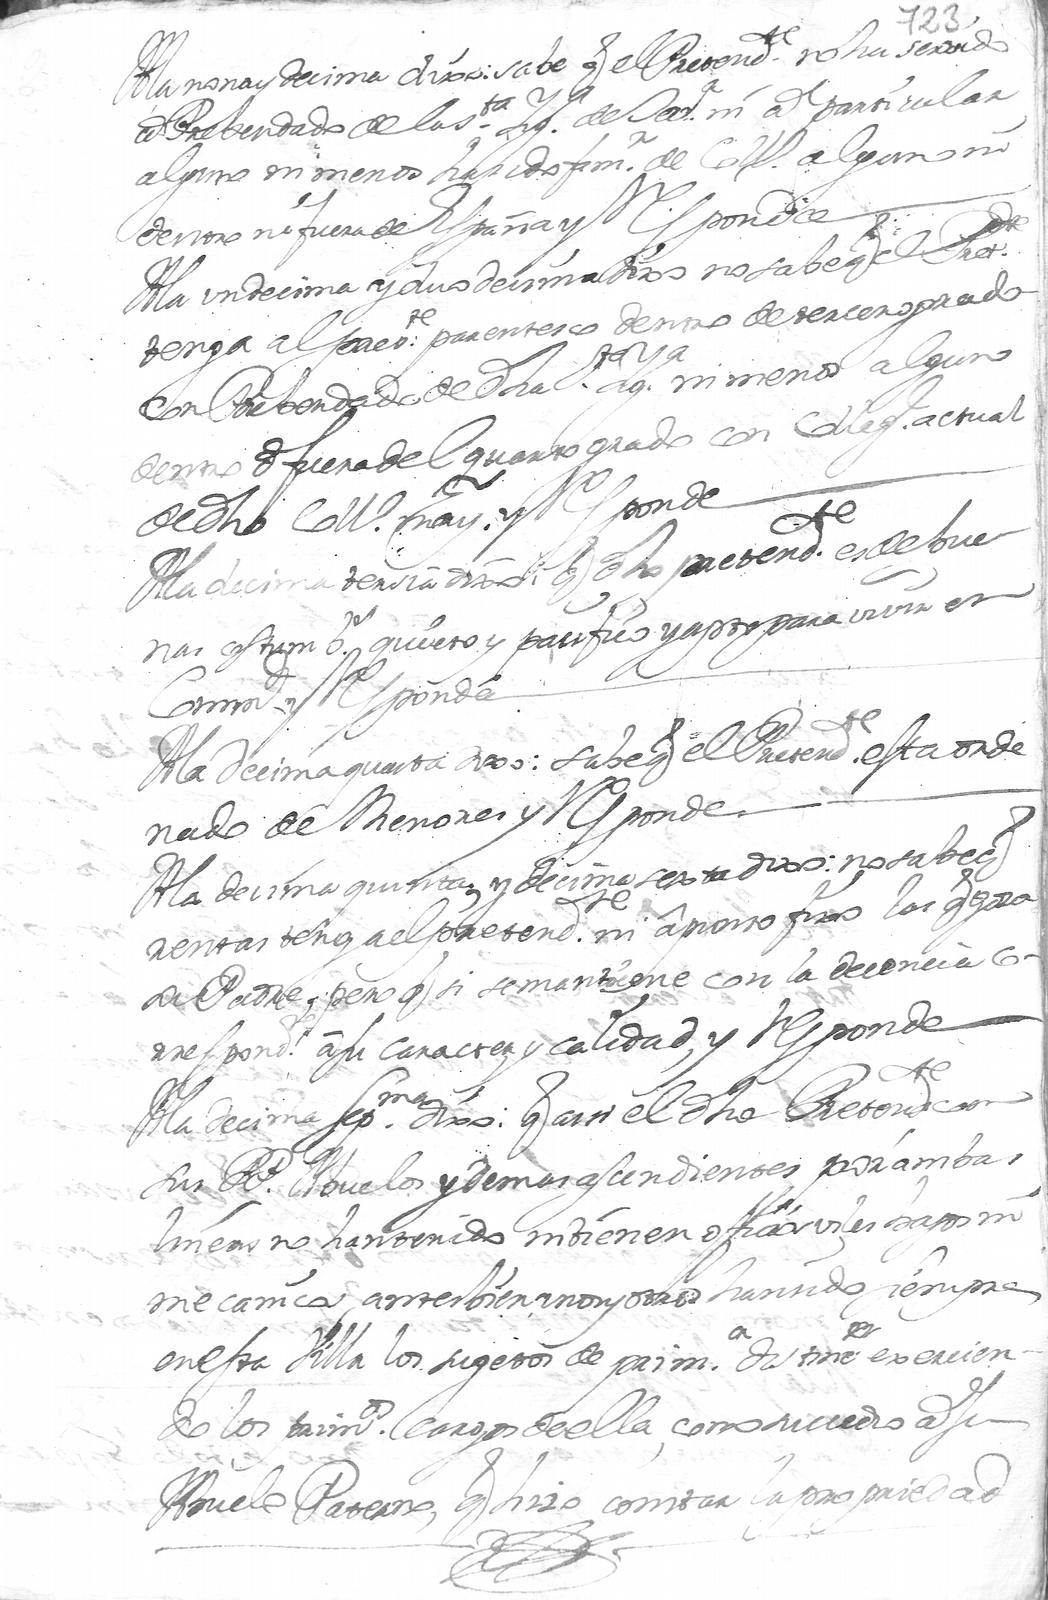 723
A la nona y decima dixo: sabe q el Pretend.te no ha servido
a Prebendado de la s.ta Yg.a de ni a particular
alguno ni menos ha sido fam.r de Coll. alguno ni
dentro ni fuera de España y Responde
A la undecima y duodecima dixo no sabe q el Pret.dte
tenga al parentesco dentro de tercero grado
con Prebendado de dha s.ta Yg.a ni menos alguno
dentro o fuera del quarto grado con Colleg. actual
de dho Coll. may. y Responde
A la decima tercia dixo: q dho pretend.te es de bue
nas costumb.s quieto y pacifico y apto para vivir en
Comd. y Responde
A la decima quarta dixo: sabe q el Pretend.te esta orde
nado de Menores y Responde
A la decima quinta y decima sexta dixo: no sabe q
rentas tenga el pretend.te ni a punto fixo las q goza
su Padre, pero q si se mantiene con la decencia co
rrespond.te a su caracter y calidad, y Responde
A la decima sep.ma dixo: q assi el dho Pretend.te con
sus PP. Abuelos y demas ascendientes por ambas
lineas no han tenido ni tienen oficios viles bajos ni
mecanicos, antes bien unos y otros han sido siempre
en esta Villa los sugetos de prim.a exercien
do los prim.os cargos de ella, como sucedio a su
Abuelo Paterno, q hizo constar la propriedad